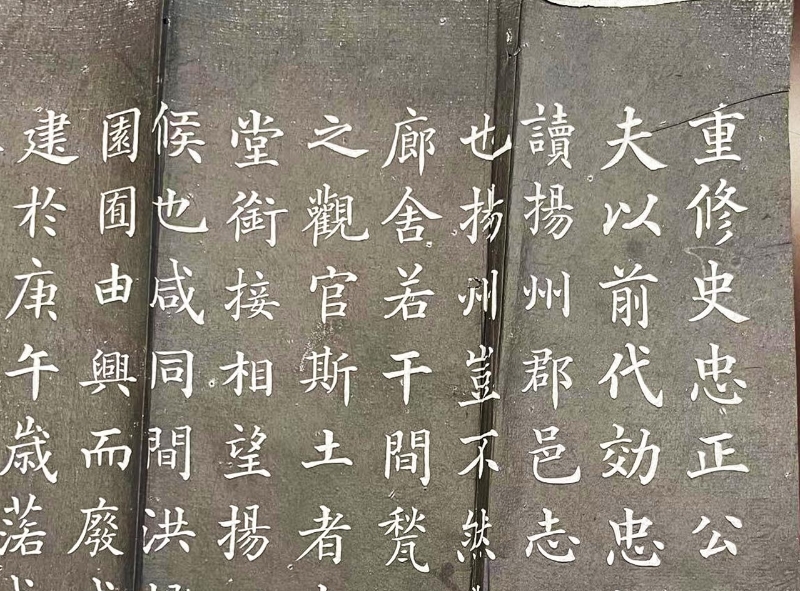 重修史忠正公
夫以前代効忠
讀揚州郡邑志
也揚州豈不然
廊舍若干間甃
之觀官斯土者
堂銜接相望揚
候也咸同間洪
園囿由興而廢
建於庚午歲落